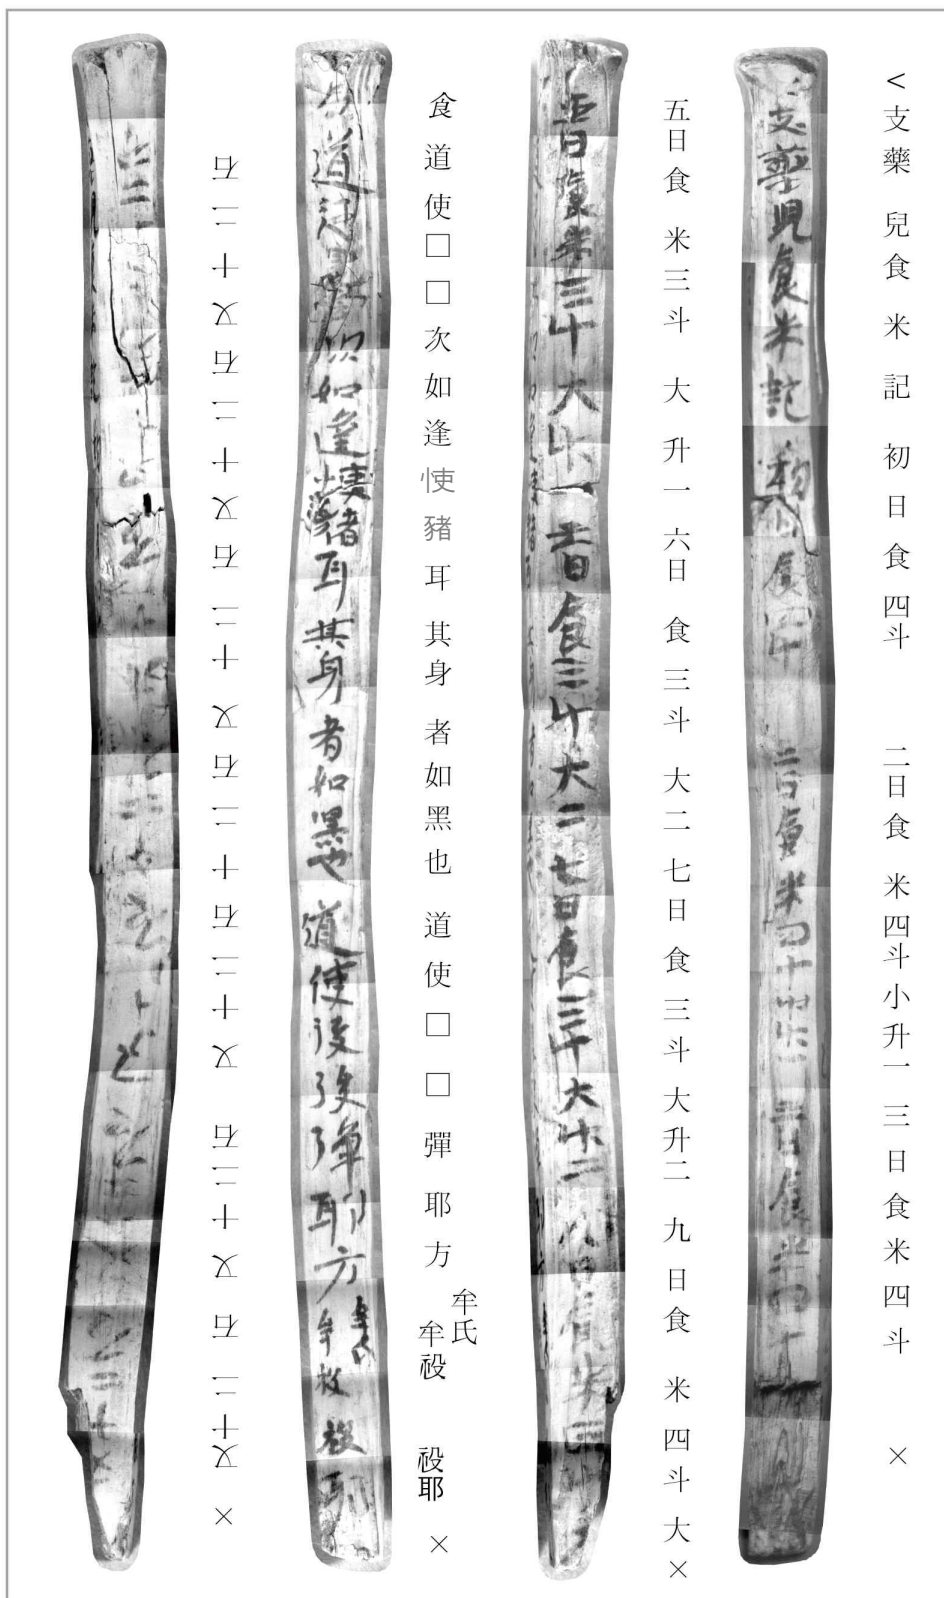 <支藥兒食米記 初日食四斗 二日食米四斗小升一 三日食米四斗 ×
五日食米三斗大升一 六日食三斗大二 七日食三斗大升二 九日食米四斗大×
食道使□□次如逢豬耳其身者如黑也道使□□彈耶方
牟氏
牟祋 祋耶 ×
×又十二石又十二石又十二石十二石又十二石又十二石又十二石